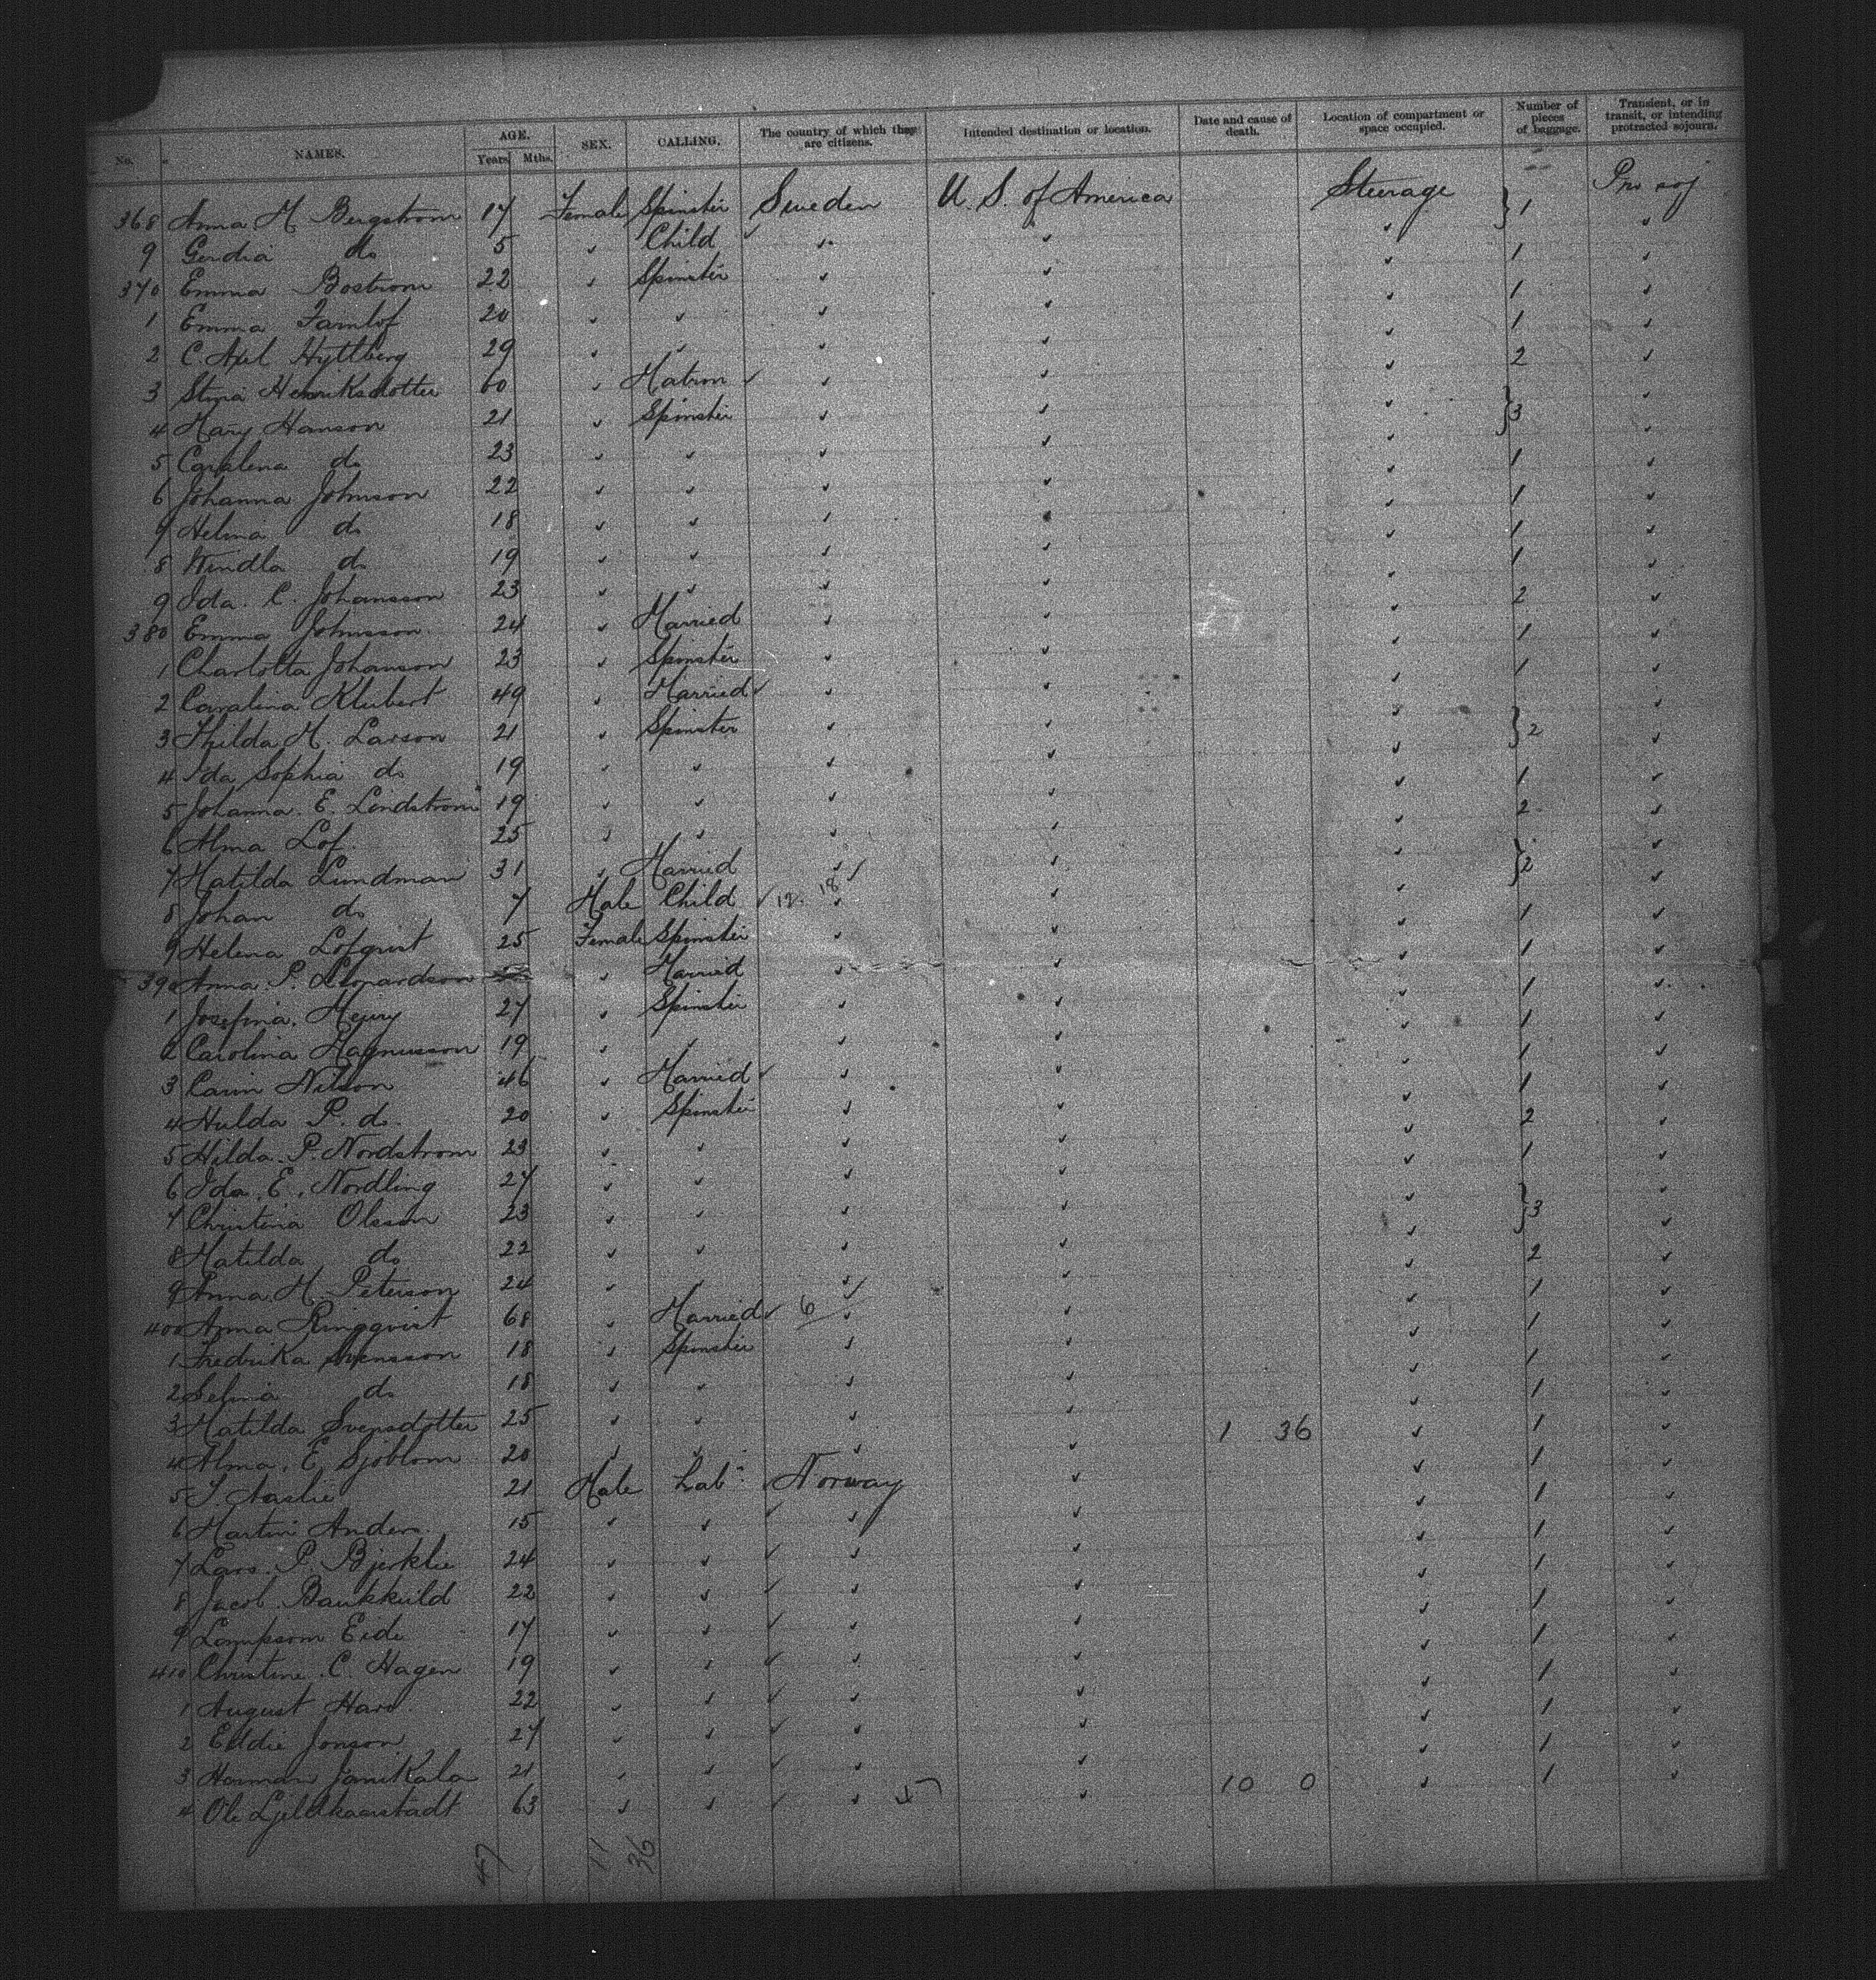 No. NAMES. AGE. Years Mths. SEX. CALLING. The country of which they are citizens. Intended destination or location. Date and cause of death. Location of compartment or space occupied. Number of pieces of baggage. Transient, or in transit, or intending protracted sojourn.
368 Anna M Bergstrom 17 Female Spinster Sweden U. S. of America Steerage } 1 Pro soj
9 Gerdia do 5 " Child ✓ " " " "
370 Emma Bostrom 22 " Spinster " " " 1 "
1 Emma 20 " " " " " 1 "
2 C. Axel Hyttberg 29 " " " " " 1 "
3 Stina Henriksdotter 60 " Matron ✓ " " " 2 "
4 Mary Hanson 21 " Spinster " " " } 3 "
5 Caralena do 23 " " " " " "
6 Johanna Johnson 22 " " " " " 1 "
7 Helma do 18 " " " " " 1 "
8 Windla do 19 " " " " " 1 "
9 Ida. C. Johansson 23 " " " " " 1 "
380 Emma Johnsson 24 " Married " " " 2 "
1 Charlotta Johanson 23 " Spinster " " " 1 "
2 Caralina Klubert 49 " Married ✓ " " " 1 "
3 Thilda M. Larson 21 " Spinster " " " } 2 "
4 Ida Sophia do 19 " " " " " "
5 Johanna. E. Lindstrom 19 " " " " " 1 "
6 Alma Lof. 25 " " " " " 2 "
7 Matilda Lundman 31 " Married " ✓ " " } 2 "
8 Johan do 7 Male Child ✓ 12. 18 " " " "
9 Helena Lofqvist 25 Female Spinster " " " 1 "
390 Anna. P. Leopardson " Married " " " 1 "
1 Josefina. 27 " Spinster " " " 1 "
2 Carolina Magnusson 19 " " " " " 1 "
3 Carin Nilson 46 " Married ✓ " " " 1 "
4 Hulda P. do. 20 " Spinster " " " 1 "
5 Hilda. P. Nordstrom 23 " " " " " 2 "
6 Ida. E. Nordling 27 " " " " " 1 "
7 Christina Olsson 23 " " " " " } 3 "
8 Matilda do 22 " " " " " "
9 Anna. M. Peterson 24 " " " ✓ " " 2 "
400 Anna Ringqvist 68 " Married ✓ 6 " " " 1 "
1 Fredrika Svensson 18 " Spinster " " " 1 "
2 Selma do 18 " " " " " 1 "
3 Matilda Svensdotter 25 " " " " 1 36 " 1 "
4 Alma. E. Sjoblom 20 " " " " " 1 "
5 21 Male Lab. Norway " " 1 "
6 Martin Anders. 15 " " ✓ " " " 1 "
7 Lars. P. Bjerklie 24 " " ✓ " " " 1 "
8 Jacob 22 " " ✓ " " " 1 "
9 Eide 17 " " ✓ " " " 1 "
410 Christine. C. Hagen 19 " " ✓ " " " 1 "
1 August 22 " " ✓ " " " 1 "
2 Eddie Jonson 27 " " ✓ " " " 1 "
3 Herman 21 " " ✓ " " " 1 "
4 Ole 63 " " ✓ " " 10 0 " 1 "
47 11 36